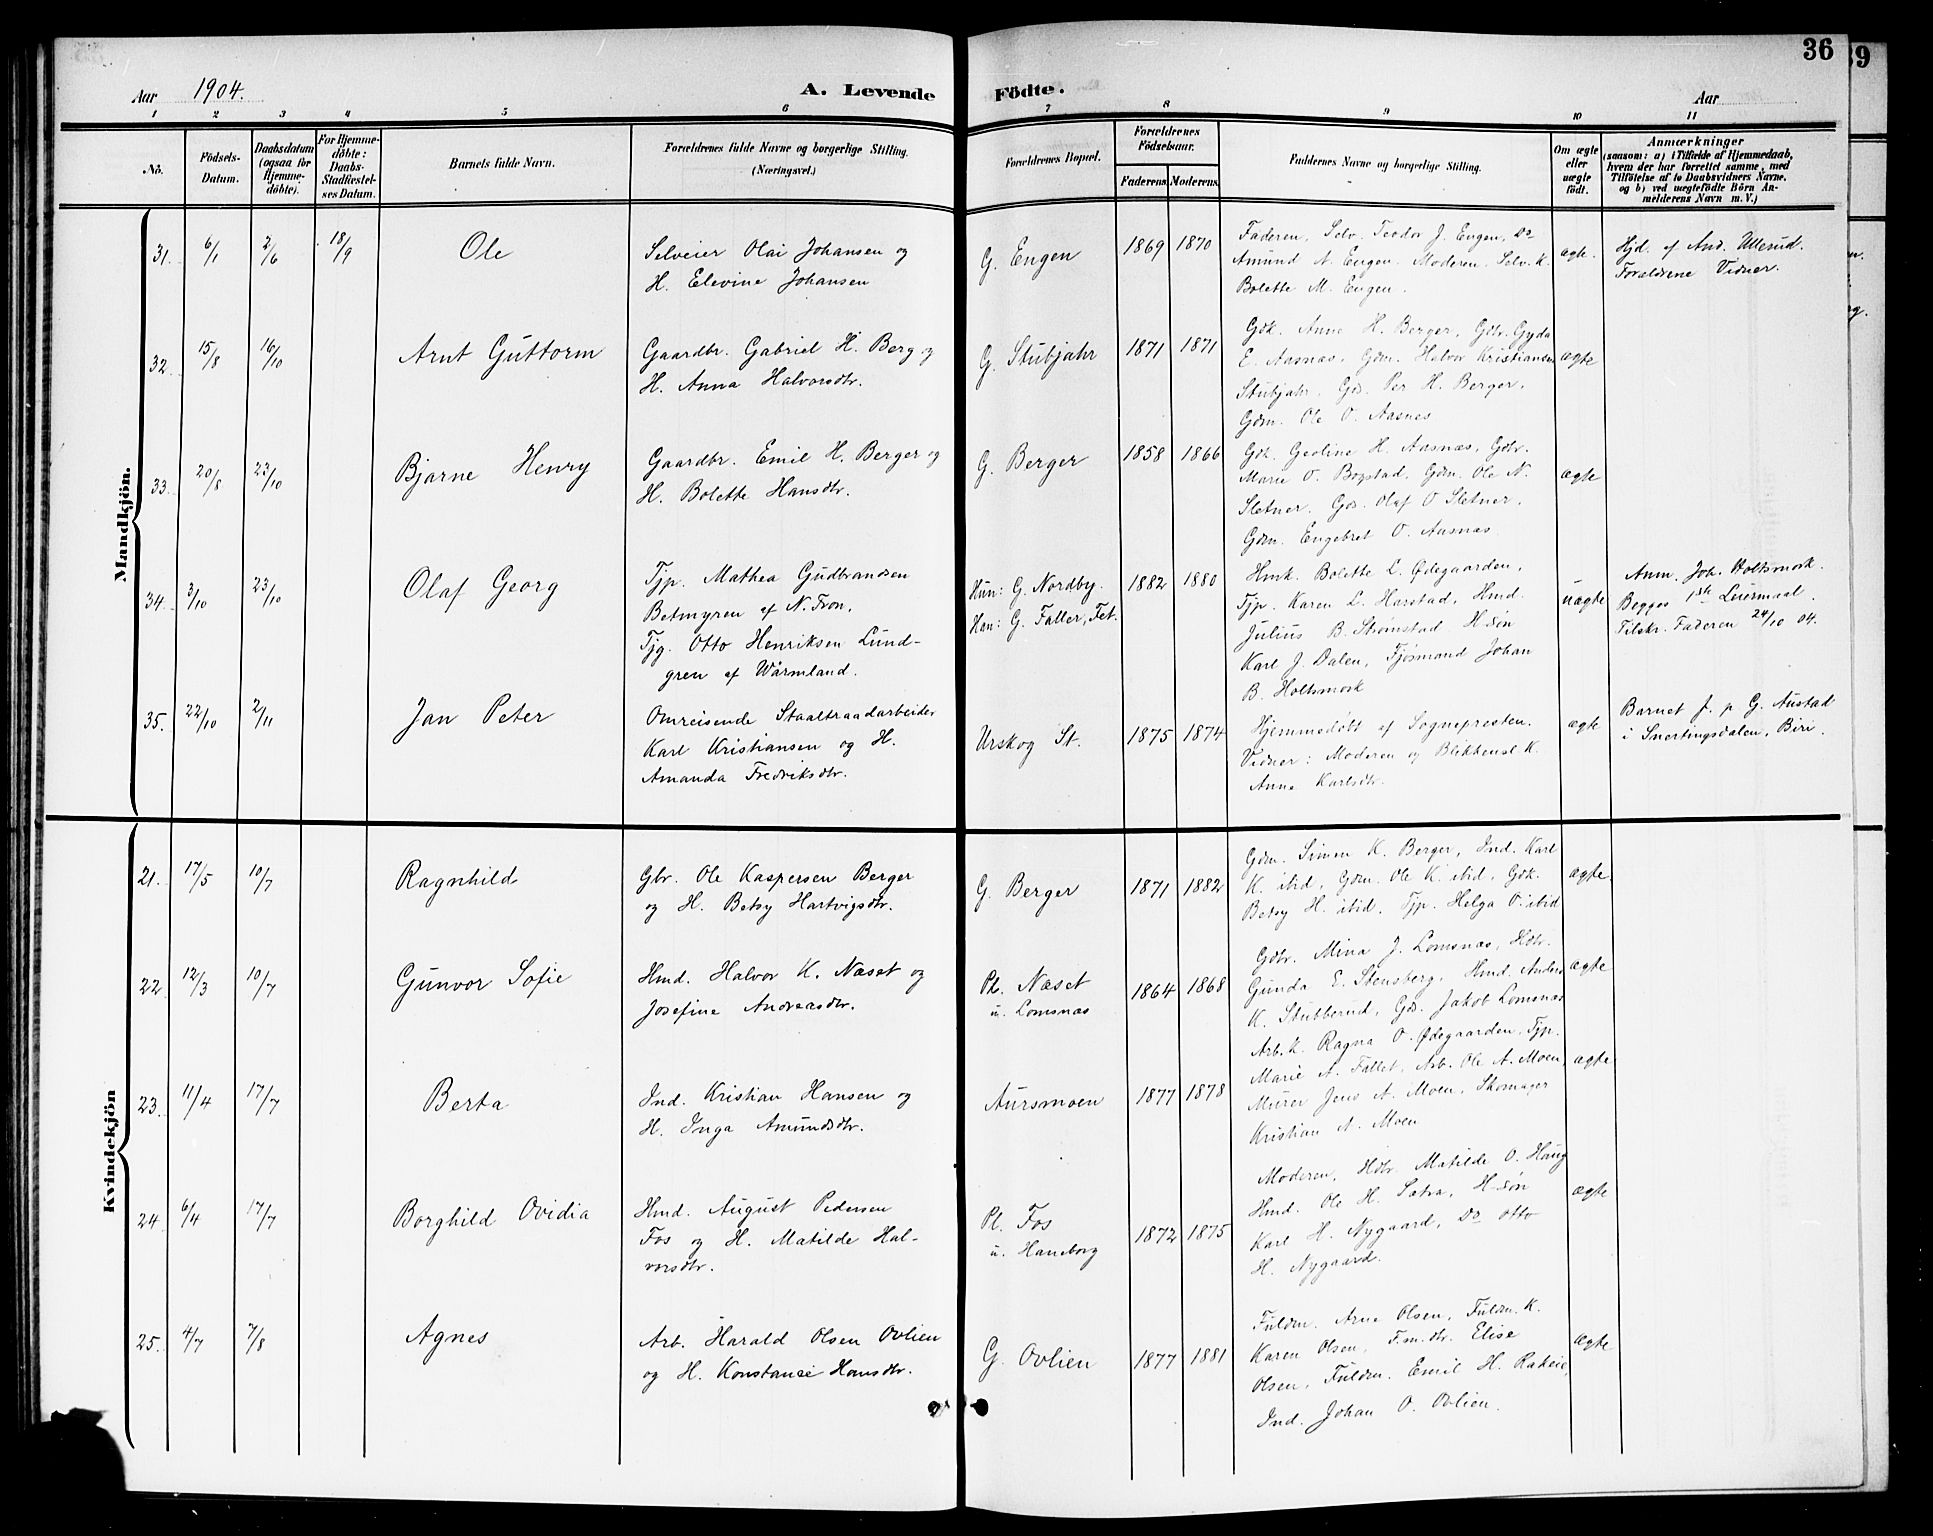 36
39
Aar 1904.
A. Levende Födte.
Aar
1 2 3 4 5 6 7 8 9 10 11
No.
Födsels-Datum.
Daabsdatum (ogsaa for Hjemme-döbte).
For Hjemme-döbte: Daabs-Stadfæstel-ses Datum.
Barnets fulde Navn.
Forældrenes fulde Navne og borgerlige Stilling.
(Næringsvei.)
Forældrenes Bopæl.
Forældrenes Födselsaar.
Faderens. Moderens.
Faddernes Navne og borgerlige Stilling.
Om ægte eller uægte födt.
Anmærkninger
(saasom: a) i Tilfælde af Hjemmedaab,
hvem der har forrettet samme, med
Tilföielse af to Daabsvidners Navne.
og b) ved uægtefödte Börn An-
melderens Navn m. V.)
Mandkjön.
31. 6/1 2/6 18/9 Ole
Selveier Olai Johansen og
H. Elevine Johansen
G. Engen 1869 1870
Faderen, Selv. Teodor J. Engen, Do
Amund A. Engen. Moderen. Selv. K.
Bolette M. Engen.
ægte.
Hjd. af And. Ullerud.
Forældrene Vidner.
32. 15/8 16/10 Arnt Guttorm
Gaardbr. Gabriel H. Berg og
H. Anna Halvorsdtr.
G. Stubjahr 1871 1871
Gdk. Anne H. Berger, Gdtr. Gyda
E. Aasnæs, Gdm. Halvor Kristiansen
Stubjahr, Gds. Per H. Berger,
Gdm. Ole O. Aasnes
ægte
33. 20/8 23/10 Bjarne Henry
Gaardbr. Emil H. Berger og
H. Bolette Hansdtr.
G. Berger 1858 1866
Gdk. Geoline H. Aasnæs, Gdtr.
Marie O. Bogstad, Gdm. Ole N.
Sletner. Gds. Olaf O Sletner.
Gdm. Engebret O. Aasnæs.
ægte
34. 3/10 23/10 Olaf Georg
Tjp. Mathea Gudbrandsen
Betmyren af N. Fron,
Tjg. Otto Henriksen Lund-
gren af Wärmland.
Hun: G. Nordby.
Han: G. Faller, Fet.
1882 1880
Hmk. Bolette L. Ødegaarden,
Tjp. Karen L. Harstad, Hmd.
Julius B. Strømstad H-søn
Karl J. Dalen, Fjøsmand Johan
B. Holtsmork
uægte
Anm. Joh. Holtsmork.
Begges 1ste Leiermaal.
Tilskr. Faderen 24/10 04.
35. 22/10 2/11 Jan Peter
Omreisende Staaltraadarbeider
Karl Kristiansen og H.
Amanda Fredriksdtr.
Urskog St. 1875 1874
Hjemmedøbt af Sognepresten.
Vidner: Moderen og Blikkensl. K.
Anne Karlsdtr.
ægte
Barnet f. p G. Austad
i Snertingsdalen, Biri.
Kvindekjön
21. 17/5 10/7 Ragnhild
Gbr. Ole Kaspersen Berger
og H. Betsy Hartvigsdtr.
G. Berger 1871 1882
Gdm. Simen K. Berger, Ind. Karl
K. ibid, Gdm. Ole K. ibid, Gdk.
Betsy H. ibid. Tjp. Helga O. ibid
ægte
22. 12/3 10/7 Gunvor Sofie
Hmd. Halvor K. Næset og
Josefine Andreasdtr.
Pl. Næset
u. Lomsnæs
1864 1868
Gdtr. Mina J. Lomsnæs, Hdtr.
Gunda E. Stensberg. Hmd. Anders
K. Stubberud, Gds. Jakob Lomsnæs
ægte
23. 11/4 17/7 Berta
Ind. Kristian Hansen og
H. Inga Amundsdtr.
Aursmoen 1877 1878
Arb. K. Ragna O. Ødegaarden, Tjp.
Marie A. Fallet, Arb. Ole A. Moen,
Murer Jens A. Moen, Skomager
Kristian A. Moen
ægte
24. 6/4 17/7 Borghild Ovidia
Hmd. August Pedersen
Fos og H. Matilde Hal-
vorsdtr.
Pl. Fos
u. Haneborg
1872 1875
Moderen, Hdtr. Matilde O. Haug
Hmd. Ole H. Satra, H-søn
Karl H. Nygaard, Do Otto
H. Nygaard.
ægte
25. 4/7 7/8 Agnes
Arb. Harald Olsen Ovlien
og H. Konstance Hansdtr.
G. Ovlien 1877 1881
Fuldm. Arne Olsen, Fuldm. K.
Karen Olsen, F.m.dtr. Elise
Olsen, Fuldm. Emil H. Rakeie,
Ind. Johan O. Ovlien.
ægte